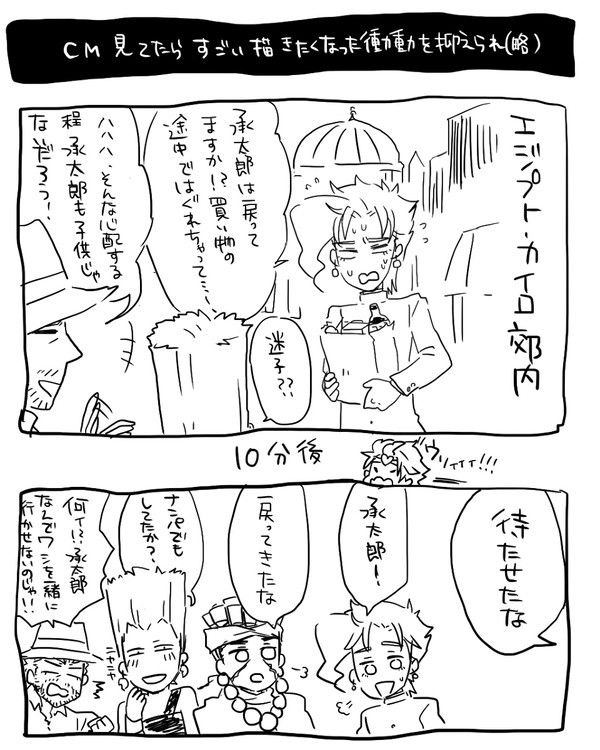 CM 見てたら すごい 描きたくなった衝動を抑えられ(略)
エジプト・カイロ郊内
承太郎は戻って
ますか!?買い物の
途中ではぐれちゃって…、
迷子??
ハハハ、そんな心配する
程 承太郎も子供じゃ
ないだろうっ!
10分後
ウリィィィ!!!
待たせたな
承太郎ー!
戻ってきたな
ナンパでも
してたかっ?
ニヤニヤ
何ィ!?承太郎
なんでワシを一緒に
行かせないのじゃ!!